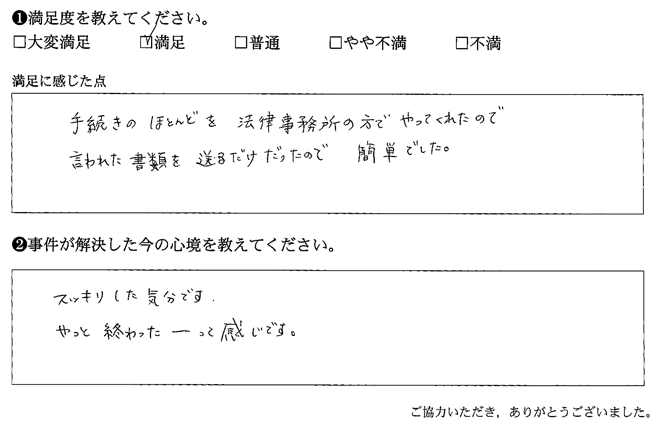 ❶満足度を教えてください。
□大変満足 ☑満足 □普通 □やや不満 □不満
満足に感じた点
手続きのほとんどを 法律事務所の方でやってくれたので
言われた書類を送るだけだったので 簡単でした。
❷事件が解決した今の心境を教えてください。
スッキリした気分です.
やっと終わったーって感じです。
ご協力いただき，ありがとうございました。